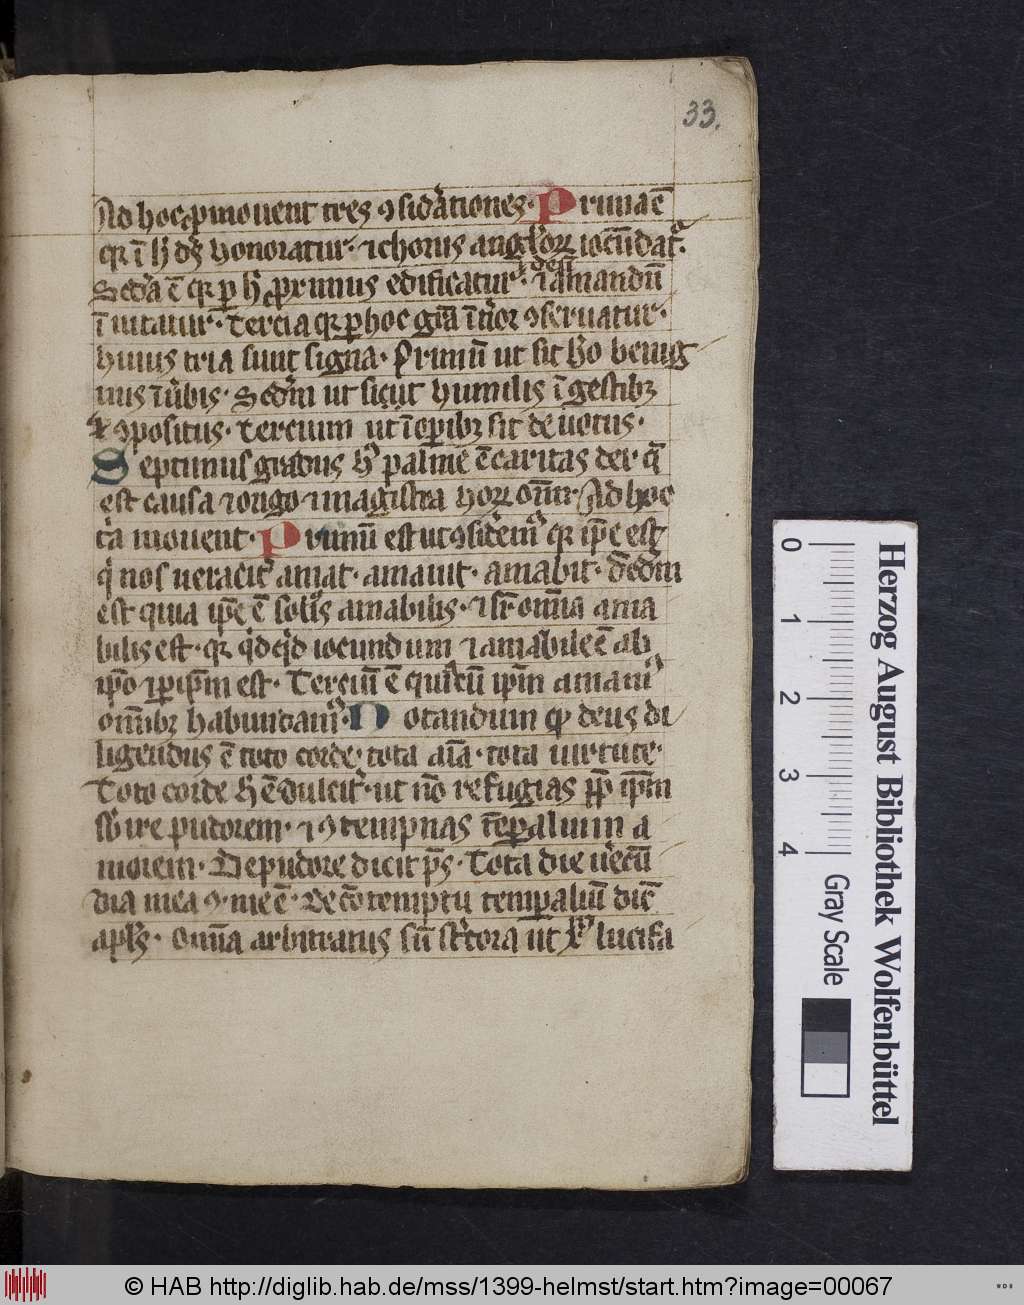 33.
Ad hoc ꝓmouent tres ꝯsid'ationes. Prima ē
qꝛ ī h' ds honoratur. ⁊ chorus angl'oꝝ iocūdat'.
Secd'a ē qꝛ ꝑ h' ꝓximus edificatur. ⁊ ad amandū
īuitatur. Tercia qꝛ ꝑ hoc gr̄a īt'ior ꝯseruatur.
huius tria sunt signa. Primū ut sit hō benig
nus ī u'bis. Secd'm ut sit humilis ī gestibꝫ
⁊ ꝯpositus. Tercium ut ī oꝑibꝫ sit deuotus.
Septimus gradus h' palme ē caritas dei q̄
est causa ⁊ origo ⁊ magistra horꝝ omn̄i. Ad hoc
t'a mouent. Primū est ut ꝯsid'em' qꝛ ip̄e est
q' nos ueracit' amat. amauit. amabit. Secd'm
est quia ip̄e ē sol's amabilis. ⁊ sr̄ om̄ia ama
bilis est. qꝛ q'dq'd iocundum ⁊ amabile ē ab
ip̄o ⁊ ꝑ ip̄m est. Terciū ē qui'a cū ip̄m amam'
om̄ibꝫ habundam'. Notandum ꝙ deus di
ligendus ē toto corde. tota aīa. tota uirtute.
Toto corde h' ē dulcit'. ut nō refugias ꝓpt' ip̄m
sb'ire pudorem. ⁊ ꝯtempnas tēꝑalium a
morem. De pudore dicit ps̄. Tota die u'ecū
dia mea ꝯ me ē. De cōtemptu temꝑaliū dic̄
apl's. Om̄ia arbitratus sū st'cora ut xp̄m lucifa
Herzog August Bibliothek Wolfenbüttel
0 1 2 3 4 Gray Scale
© HAB http://diglib.hab.de/mss/1399-helmst/start.htm?image=00067